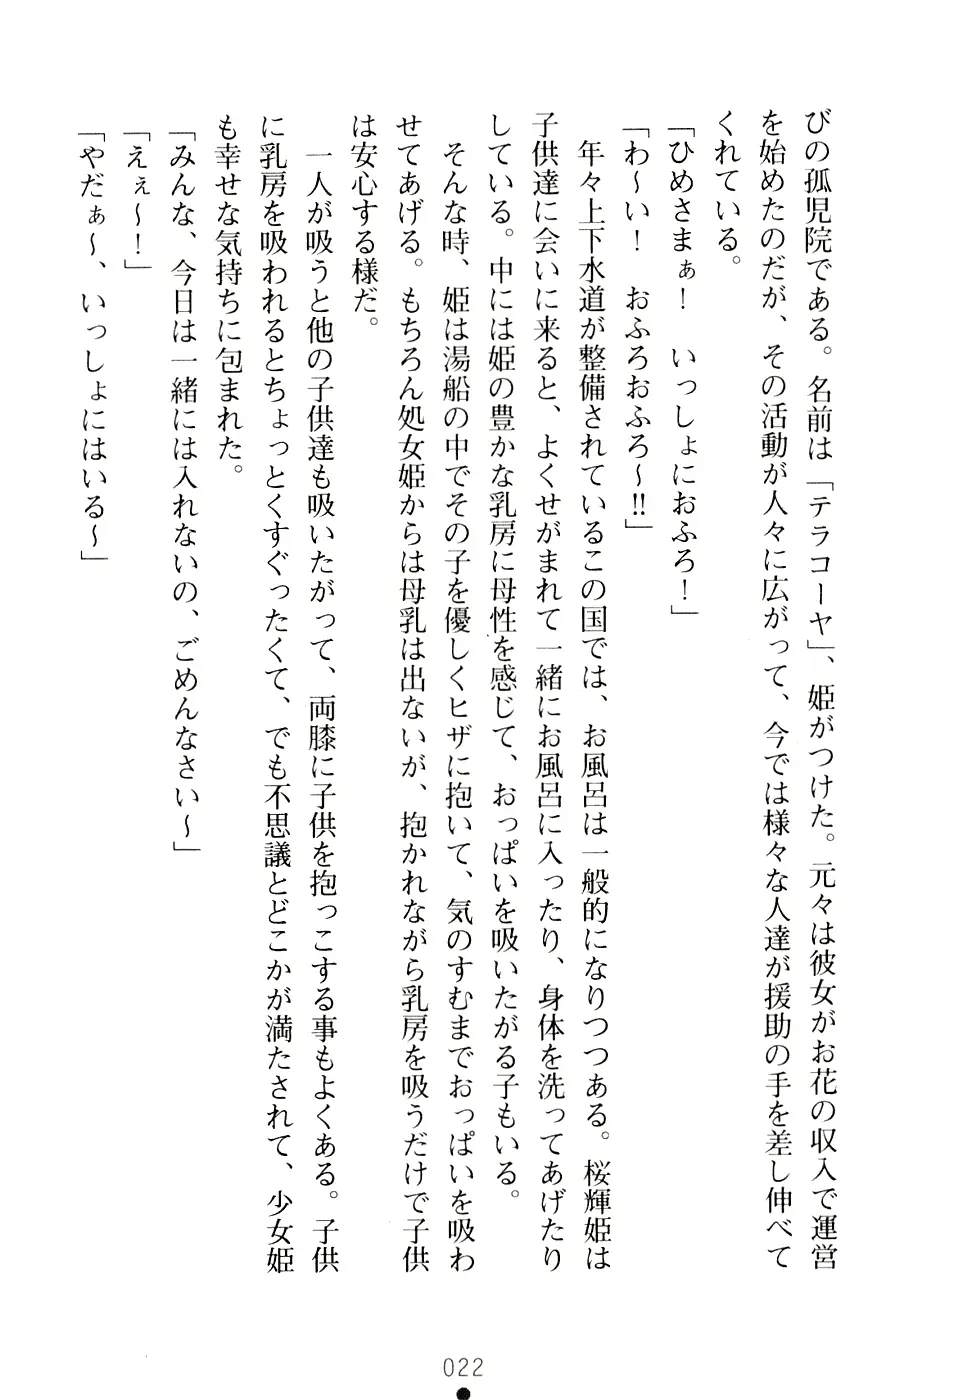 びの孤児院である。名前は「テラコーヤ」、姫がつけた。元々は彼女がお花の収入で運営
を始めたのだが、その活動が人々に広がって、今では様々な人達が援助の手を差し伸べて
くれている。
「ひめさまぁ！　いっしょにおふろ！」
「わ～い！　おふろおふろ～!!」
　年々上下水道が整備されているこの国では、お風呂は一般的になりつつある。桜輝姫は
子供達に会いに来ると、よくせがまれて一緒にお風呂に入ったり、身体を洗ってあげたり
している。中には姫の豊かな乳房に母性を感じて、おっぱいを吸いたがる子もいる。
　そんな時、姫は湯船の中でその子を優しくヒザに抱いて、気のすむまでおっぱいを吸わ
せてあげる。もちろん処女姫からは母乳は出ないが、抱かれながら乳房を吸うだけで子供
は安心する様だ。
　一人が吸うと他の子供達も吸いたがって、両膝に子供を抱っこする事もよくある。子供
に乳房を吸われるとちょっとくすぐったくて、でも不思議とどこかが満たされて、少女姫
も幸せな気持ちに包まれた。
「みんな、今日は一緒には入れないの、ごめんなさい～」
「えぇ～！」
「やだぁ～、いっしょにはいる～」
022